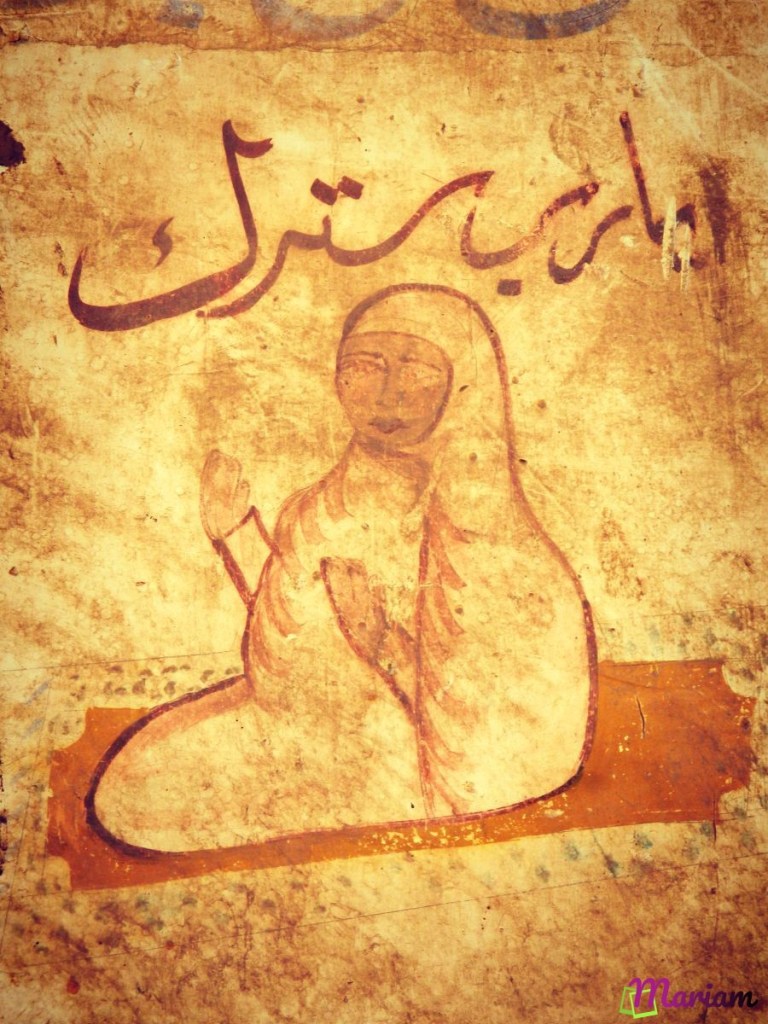 يارب سترك
Mariam